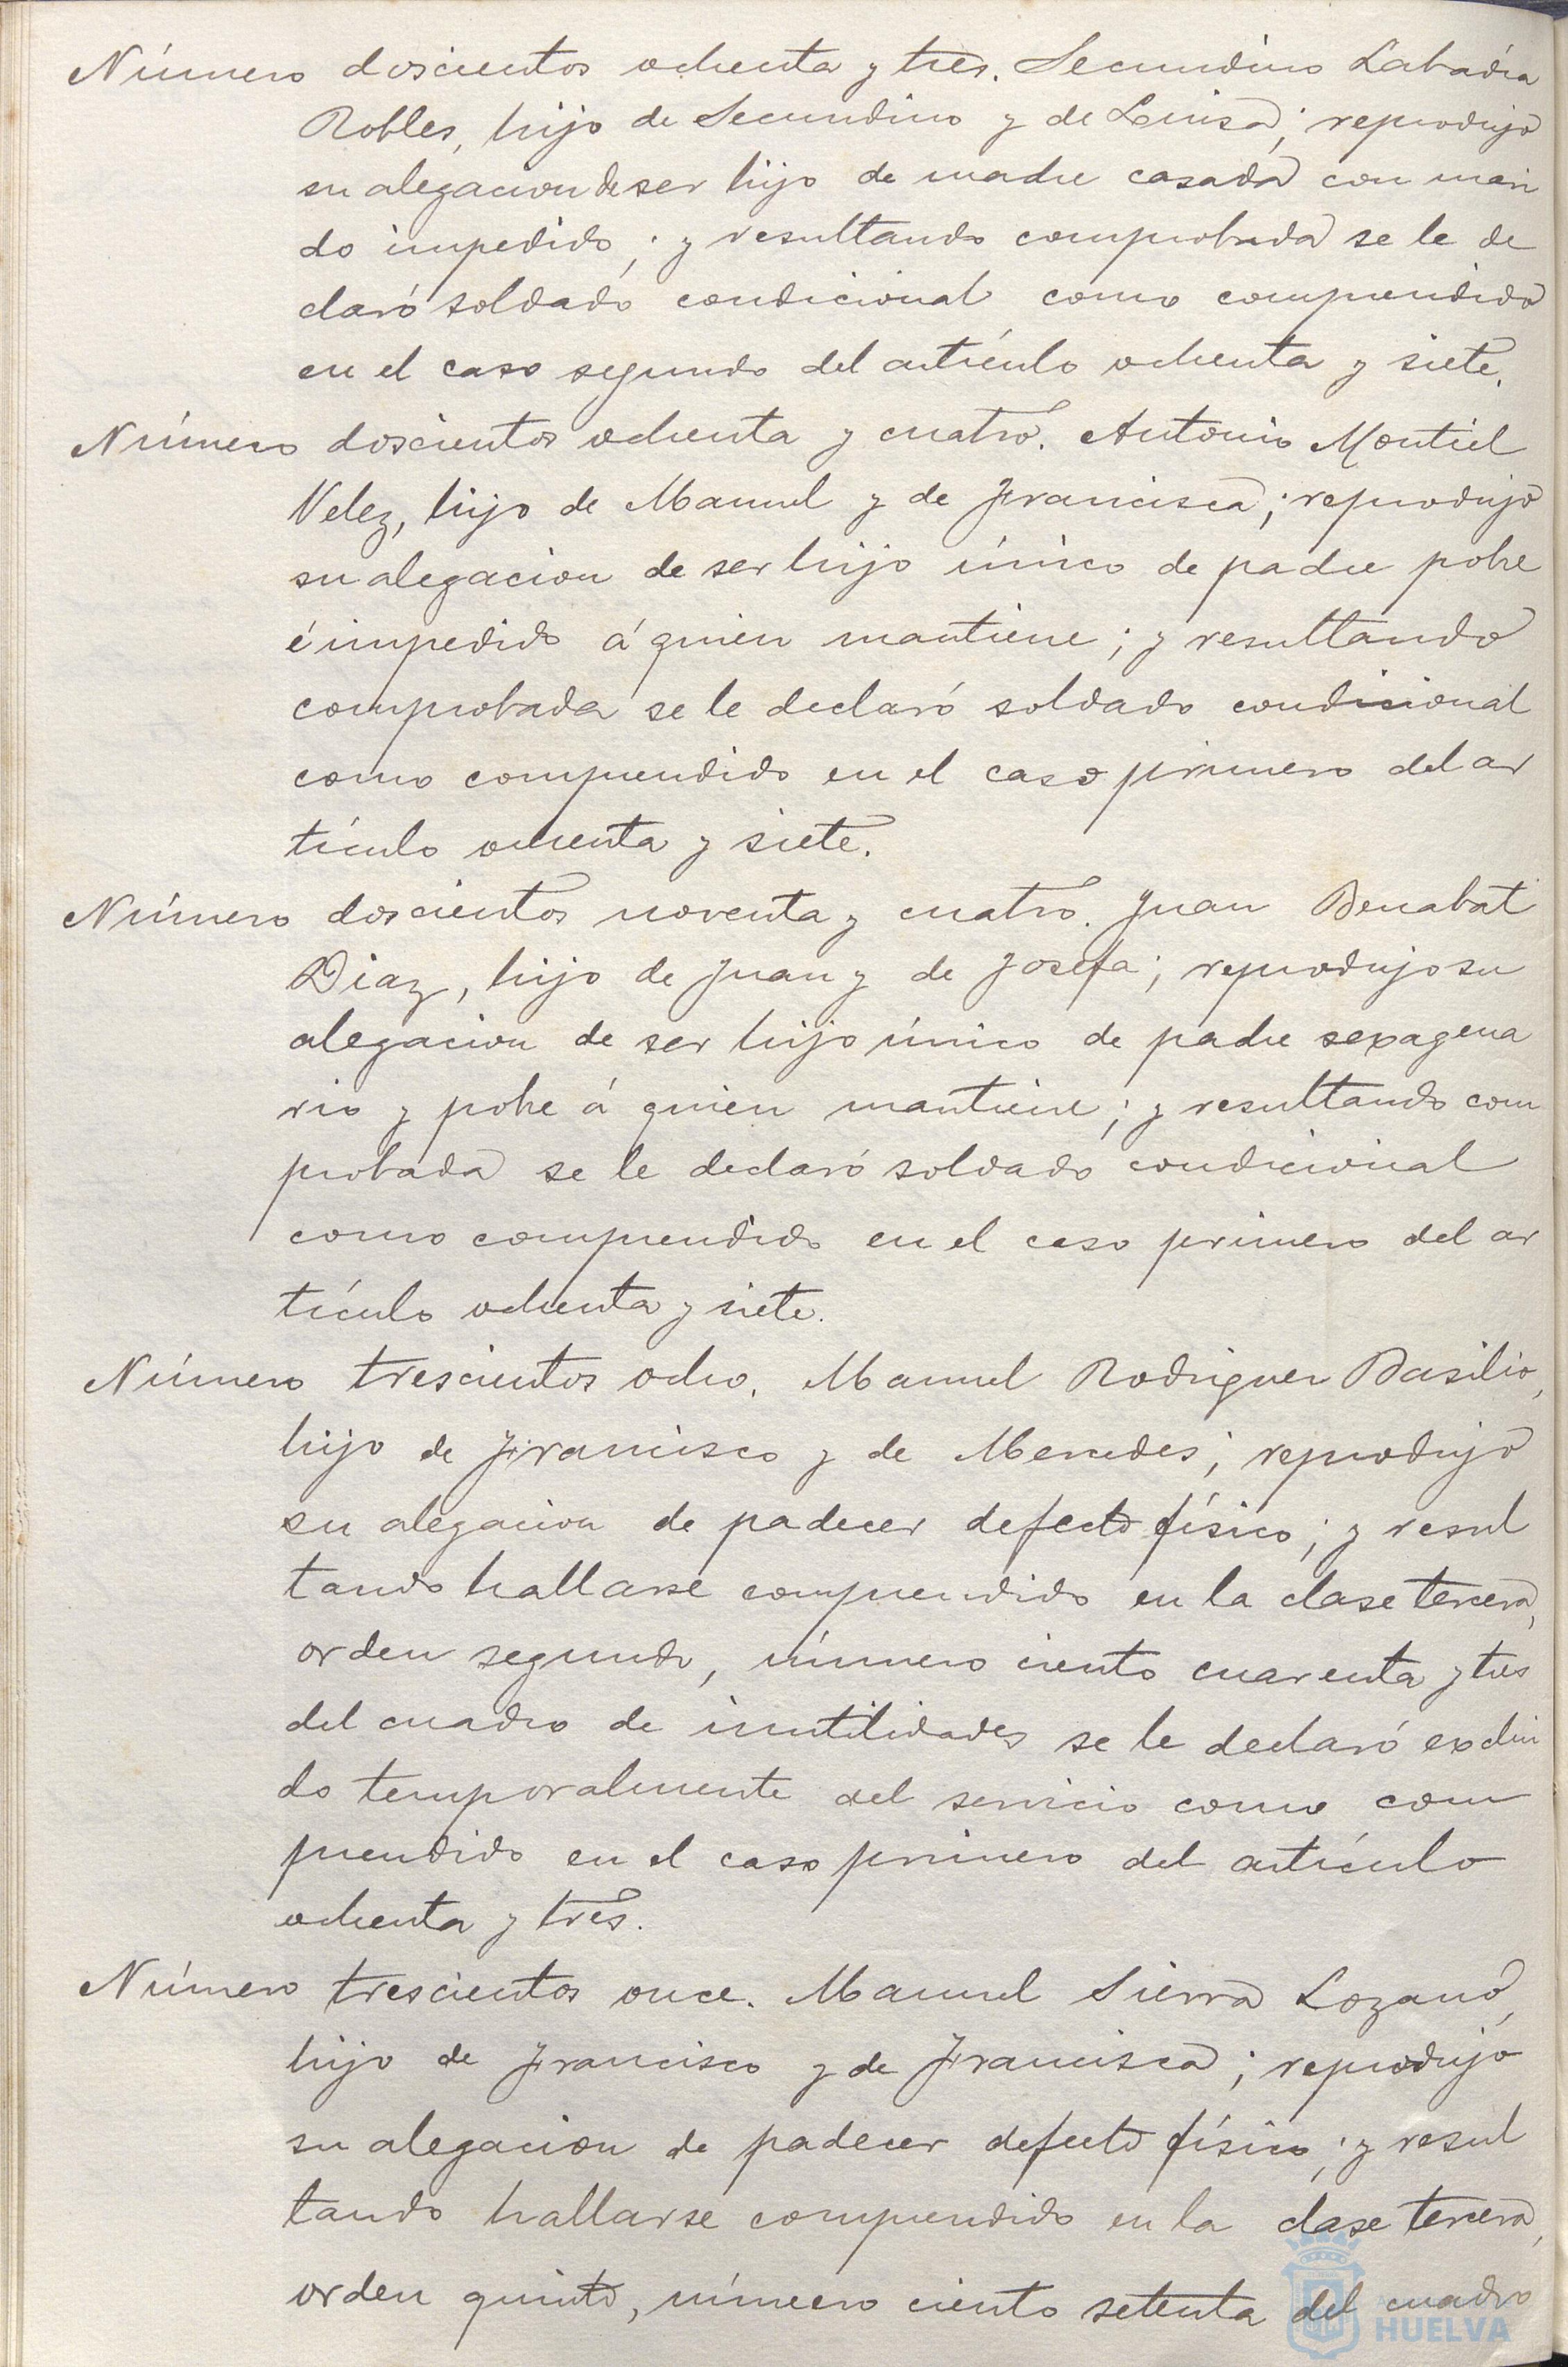 Número doscientos ochenta y tres. Secundino Labadía
Robles, hijo de Secundino y de Luisa; reprodujo
su alegacion de ser hijo de madre casada con mari
do impedido; y resultando comprobada se le de
claró soldado condicional como comprendido
en el caso segundo del artículo ochenta y siete.
Número doscientos ochenta y cuatro. Antonio Montiel
Velez, hijo de Manuel y de Francisca; reprodujo
su alegacion de ser hijo único de padre pobre
é impedido á quien mantiene; y resultando
comprobada se le declaró soldado condicional
como comprendido en el caso primero del ar
tículo ochenta y siete.
Número doscientos noventa y cuatro. Juan Benabat
Diaz, hijo de Juan y de Josefa; reprodujo su
alegacion de ser hijo único de padre sexagena
rio y pobre á quien mantiene; y resultando com
probada se le declaró soldado condicional
como comprendido en el caso primero del ar
tículo ochenta y siete.
Número trescientos ocho. Manuel Rodriguez Basilio,
hijo de Francisco y de Mercedes; reprodujo
su alegacion de padecer defecto físico; y resul
tando hallarse comprendido en la clase tercera,
orden segundo, número ciento cuarenta y tres
del cuadro de inutilidades se le declaró exclui
do temporalmente del servicio como com
prendido en el caso primero del artículo
ochenta y tres.
Número trescientos once. Manuel Sierra Lozano,
hijo de Francisco y de Francisca; reprodujo
su alegacion de padecer defecto físico; y resul
tando hallarse comprendido en la clase tercera,
orden quinto, número ciento setenta del cuadro
HUELVA